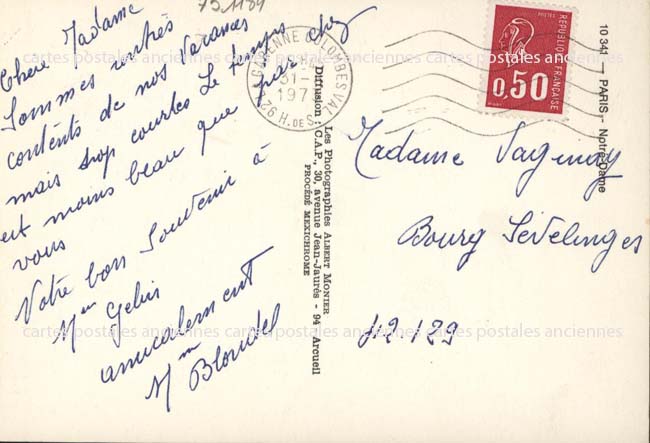 75-1184
Chère Madame
Sommes rentrés
contents de nos vacances
mais trop courtes Le temps
est moins beau que par chez
vous
Votre bon Souvenir à
Mme
amicalement
Mme Blondel
LA GARENNE COLOMBES VAL
31-
197
92 H. DE S.
RÉPUBLIQUE FRANÇAISE
POSTES
0,50
10 341 - PARIS - Notre-Dame
Les Photographies ALBERT MONIER
Diffusion : C.A.P., 30, avenue Jean-Jaurès - 94 - Arcueil
PROCÉDÉ MEXICHROME
Madame
Bourg Sevelinges
42.129
cartes postales anciennes cartes postales anciennes cartes postales anciennes
cartes postales anciennes cartes postales anciennes cartes postales anciennes